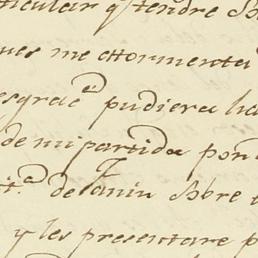 ticular q̃ tendre Sob
ues me attormenta
esgraã pudiera ha
de mi partida pon
it.a de Janin Sobre
y les presentare p